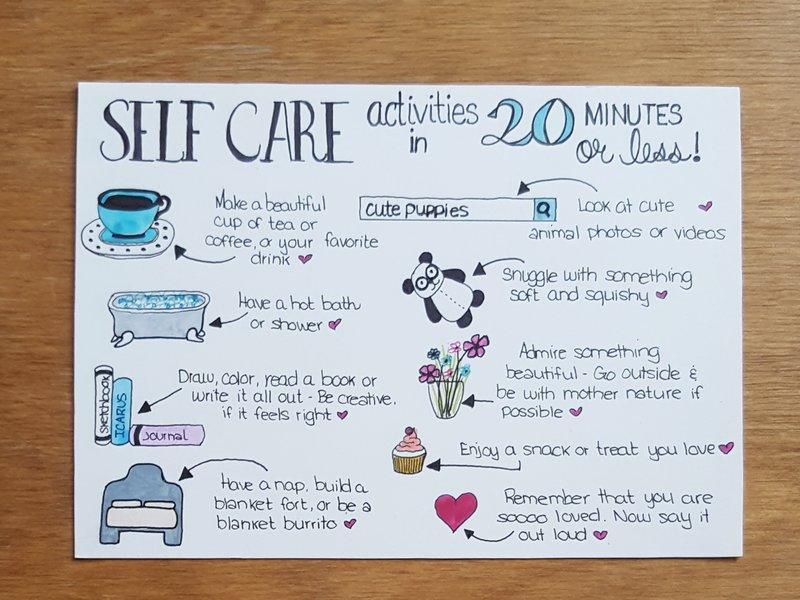 SELF CARE activities in 20 MINUTES or less!
Make a beautiful
cup of tea or
coffee, or your favorite
drink
cute puppies
Look at cute
animal photos or videos
Have a hot bath
or shower
Snuggle with something
soft and squishy
sketchbook
ICARUS
Journal
Draw, color, read a book or
write it all out - Be creative,
if it feels right
Admire something
beautiful - Go outside &
be with mother nature if
possible
Enjoy a snack or treat you love
Have a nap, build a
blanket fort, or be a
blanket burrito
Remember that you are
soooo loved. Now say it
out loud